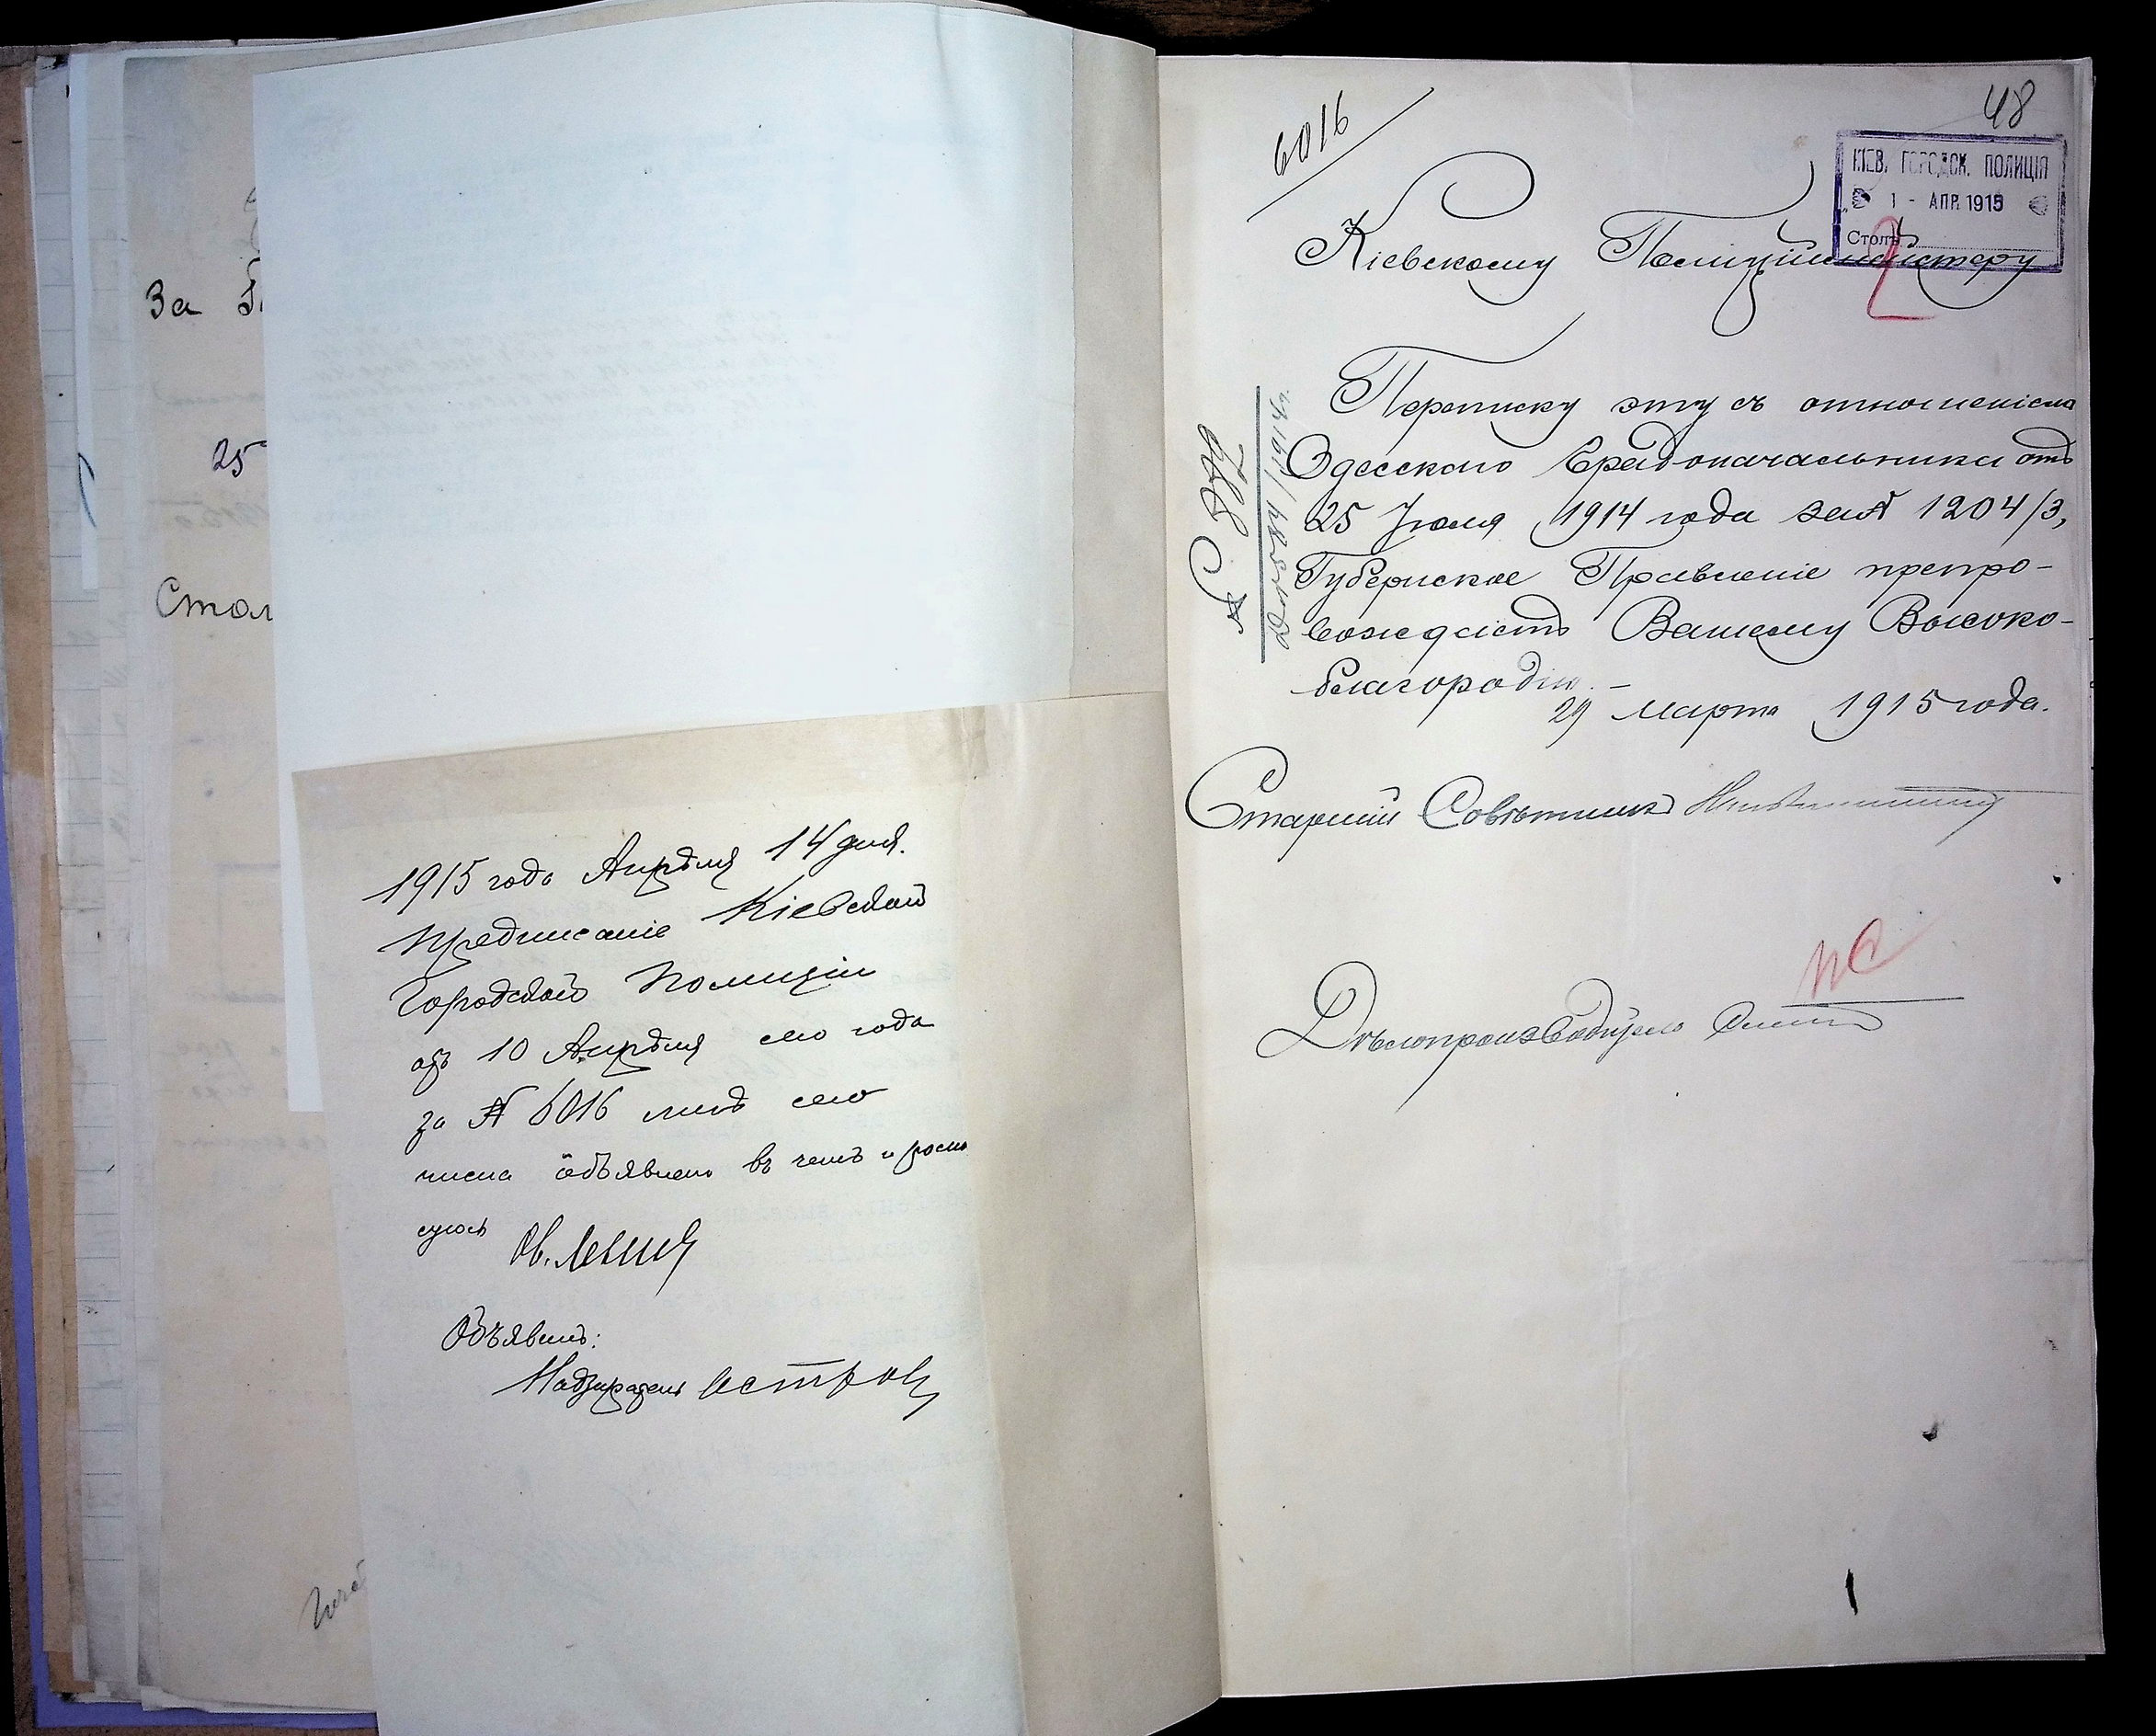 За
25
Стол
1915 года Апрѣля 14 дня.
Предписаніе Кіевской
Городской Полиціи
отъ 10 Апрѣля сего года
за № 6016 мнѣ сего
числа объявлено въ чемъ и роспи
суюсь
Объявилъ:
Надзиратель
48
6016
КІЕВ. ГОРОДСК. ПОЛИЦІЯ
1 - АПР. 1915
Столъ
2
Кіевскому Полиціймейстеру
Переписку эту съ отношеніемъ
Одесскаго Градоначальника отъ
25 Іюля 1914 года за № 1204/3,
Губернское Правленіе препро-
вождаетъ Вашему Высоко-
благородію. -
29 Марта 1915 года.
№
1914 г.
Старшій Совѣтникъ
Дѣлопроизводитель